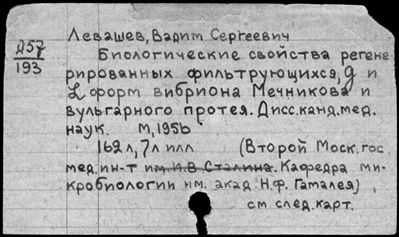 Левашев, Вадим Сергеевич
257
193
Биологические свойства регене-
рированных фильтрующихся, g и
L форм вибриона Мечникова и
вульгарного протея. Дисс. канд. мед.
наук. М, 1956
162 л, 7 л илл (Второй Моск. гос.
мед. ин-т им. И.В. Сталина. Кафедра ми-
кробиологии им. акад. Н.Ф. Гамалея),
см след. карт.